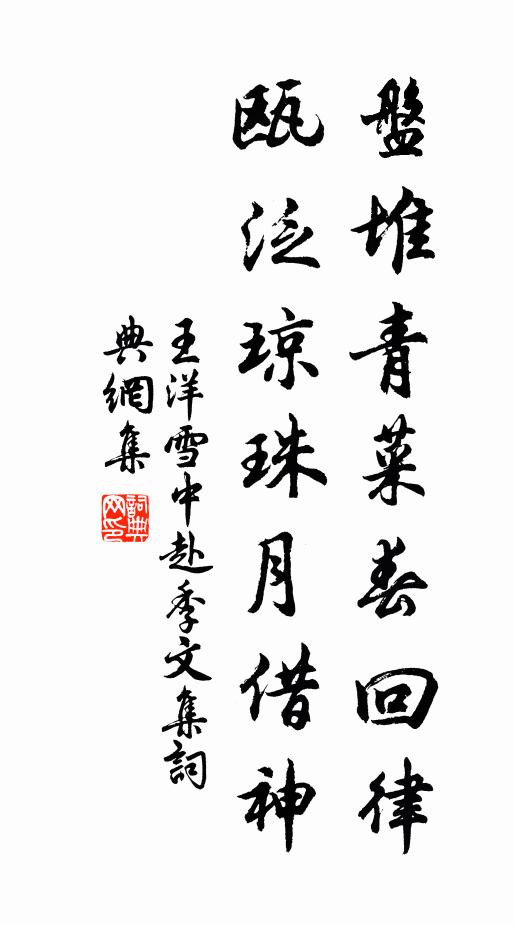 盤堆青菜春回律
甌泛琼珠月借神
王洋雪中赴季文集詞
典網集
詞典网印